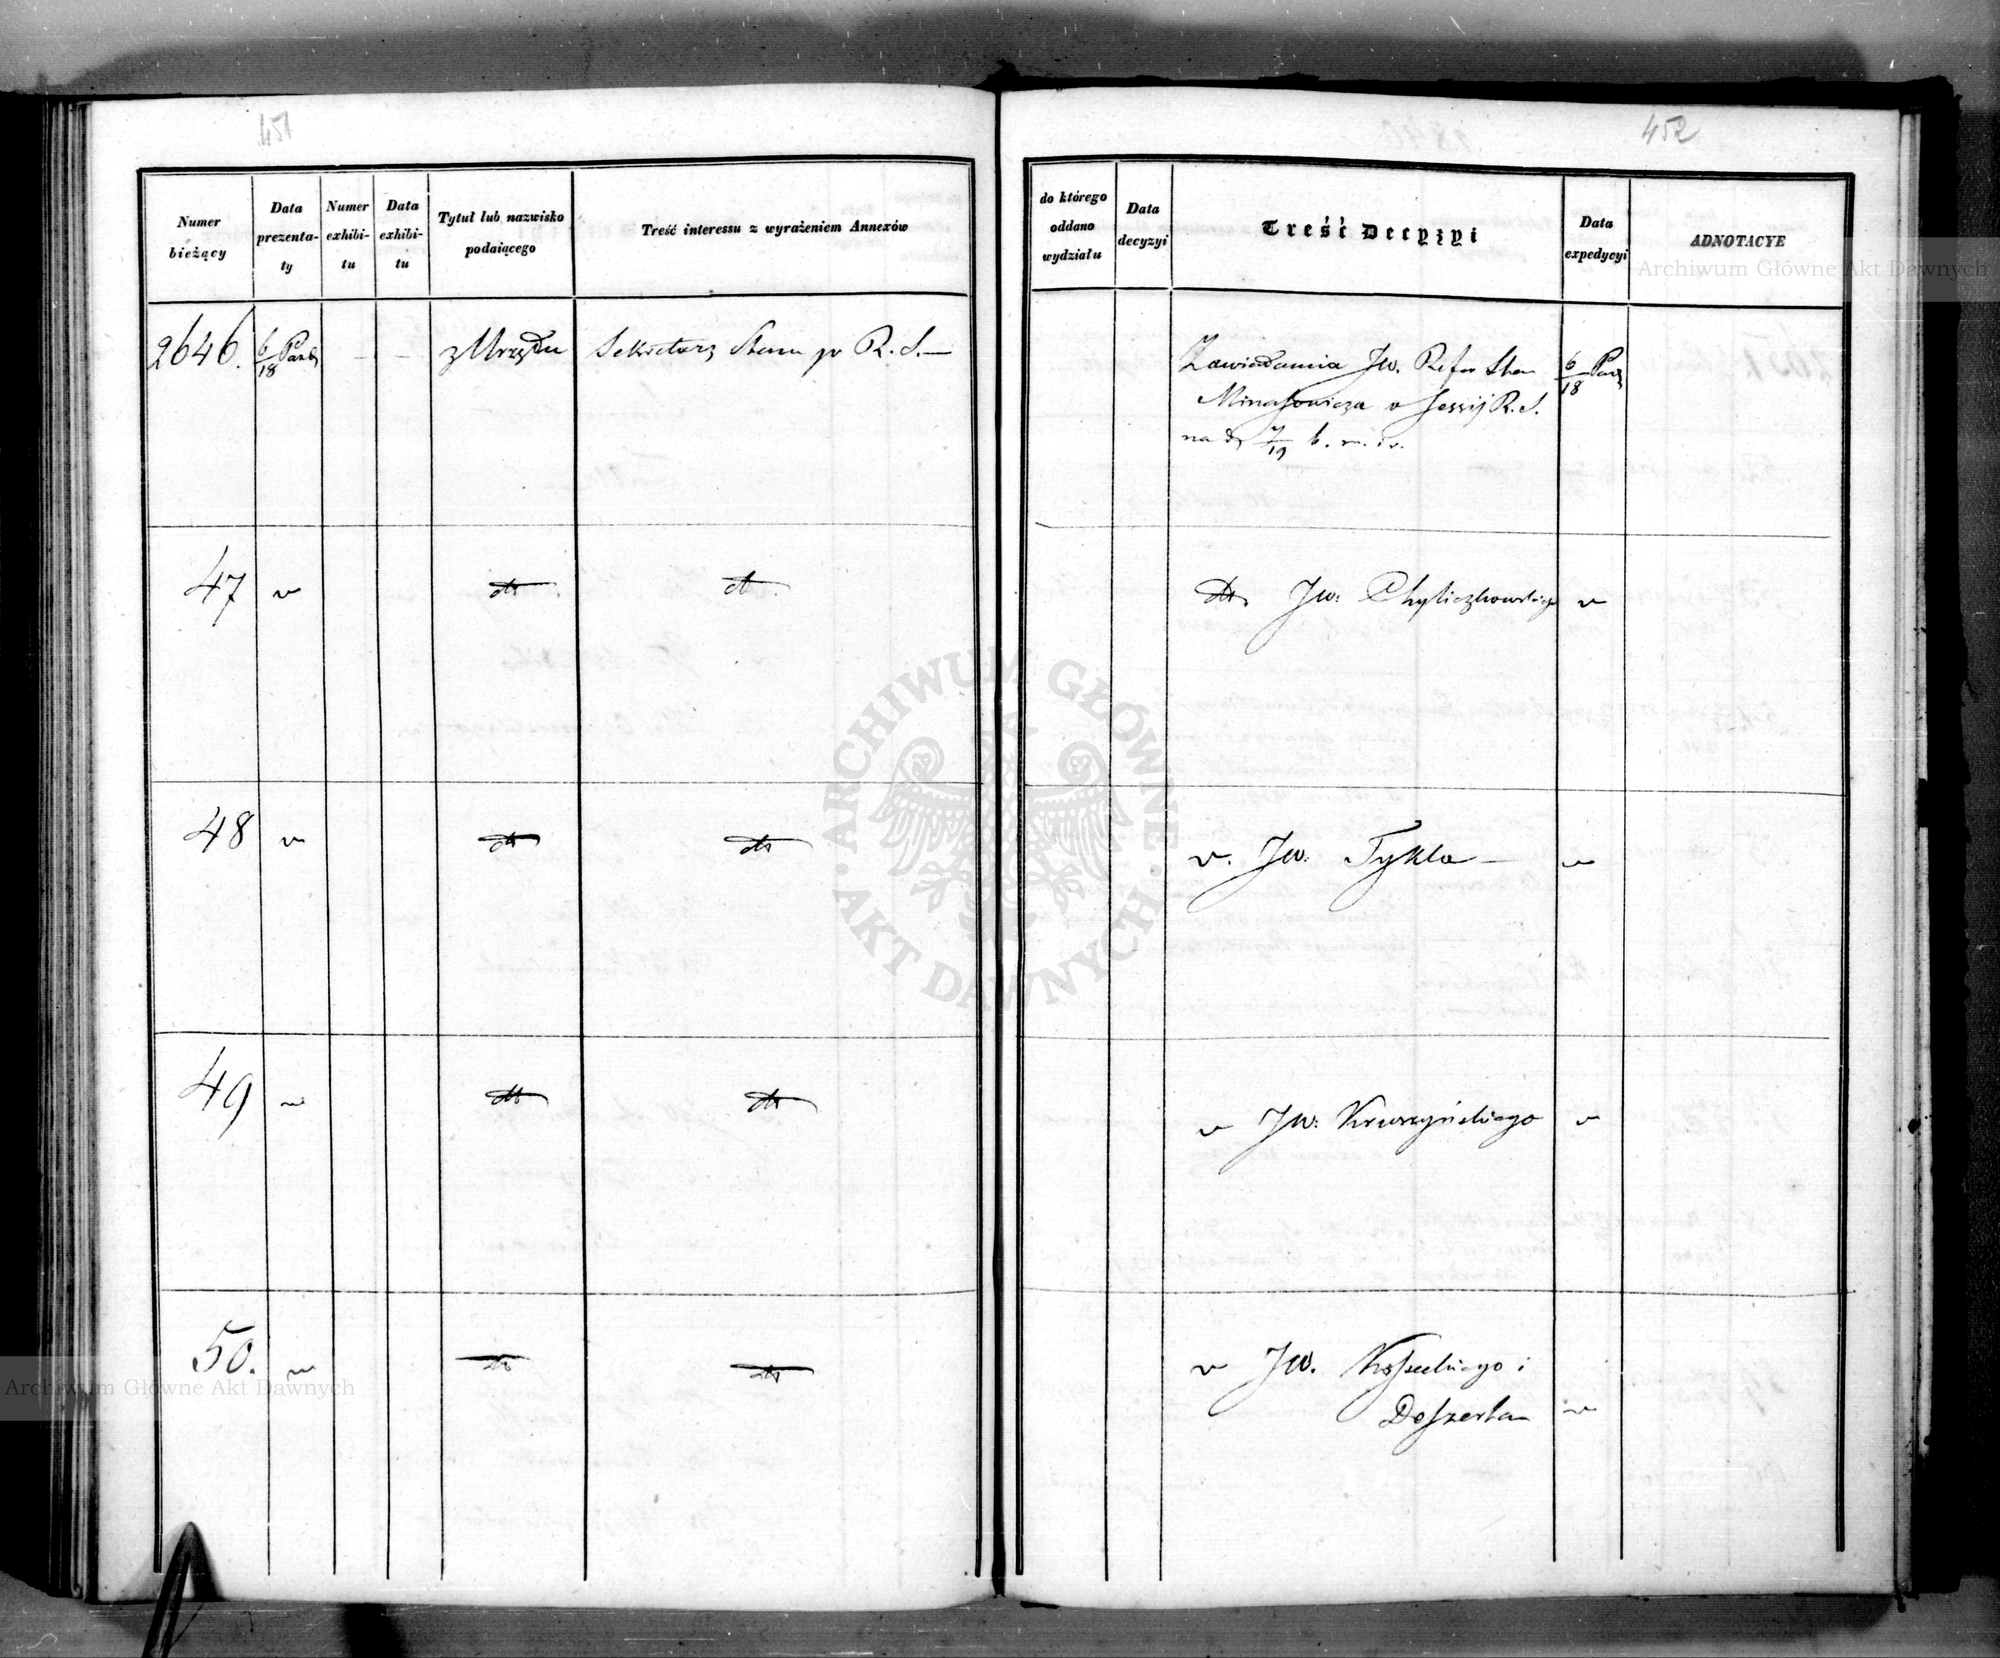 451
Numer bieżący
Data prezenta-ty
Numer exhibi-tu
Data exhibi-tu
Tytuł lub nazwisko podaiącego
Treść interessu z wyrażeniem Annexów
2646. 6/18 Paźdz — — z Urzędu Sekretarz Stanu pr R. S. —
47 v dto dto
48 v dto dto
49 v dto dto
50. v dto dto
452
do którego oddano wydziału
Data decyzyi
Treść Decyzyi
Data expedycyi
ADNOTACYE
Zawiadamia Jw. Refer Stanu 6/18 Paźdz
Minasowicza o Sessyi R. S.
na d. 7/19 b. m. i r.
dto Jw. Chyliczkowskiego v
v. Jw. Tykla — v
v Jw. Kruszyńskiego v
v Jw. i
Deszerta v
ARCHIWUM GŁÓWNE AKT DAWNYCH
Archiwum Główne Akt Dawnych
Archiwum Główne Akt Dawnych